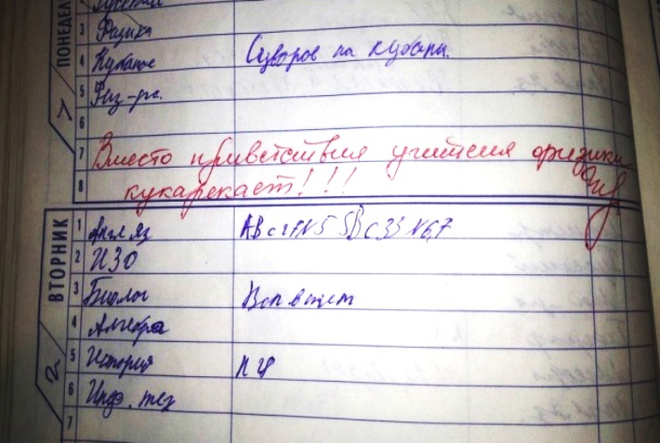 ПОНЕДЕЛ
Русский
3 Физика
4 Кубанов Суворов на кубани.
5 Физ-ра.
6
7 Вместо приветствия учителя физики
8 кукарекает!!!
1
ВТОРНИК
1 Англ яз АВ с 27 N5 SB с 33 N 6,7
2 ИЗО
3 Биолог Воп в тет
4 Алгебра
5 История п 4
6 Инф. тех
7
2